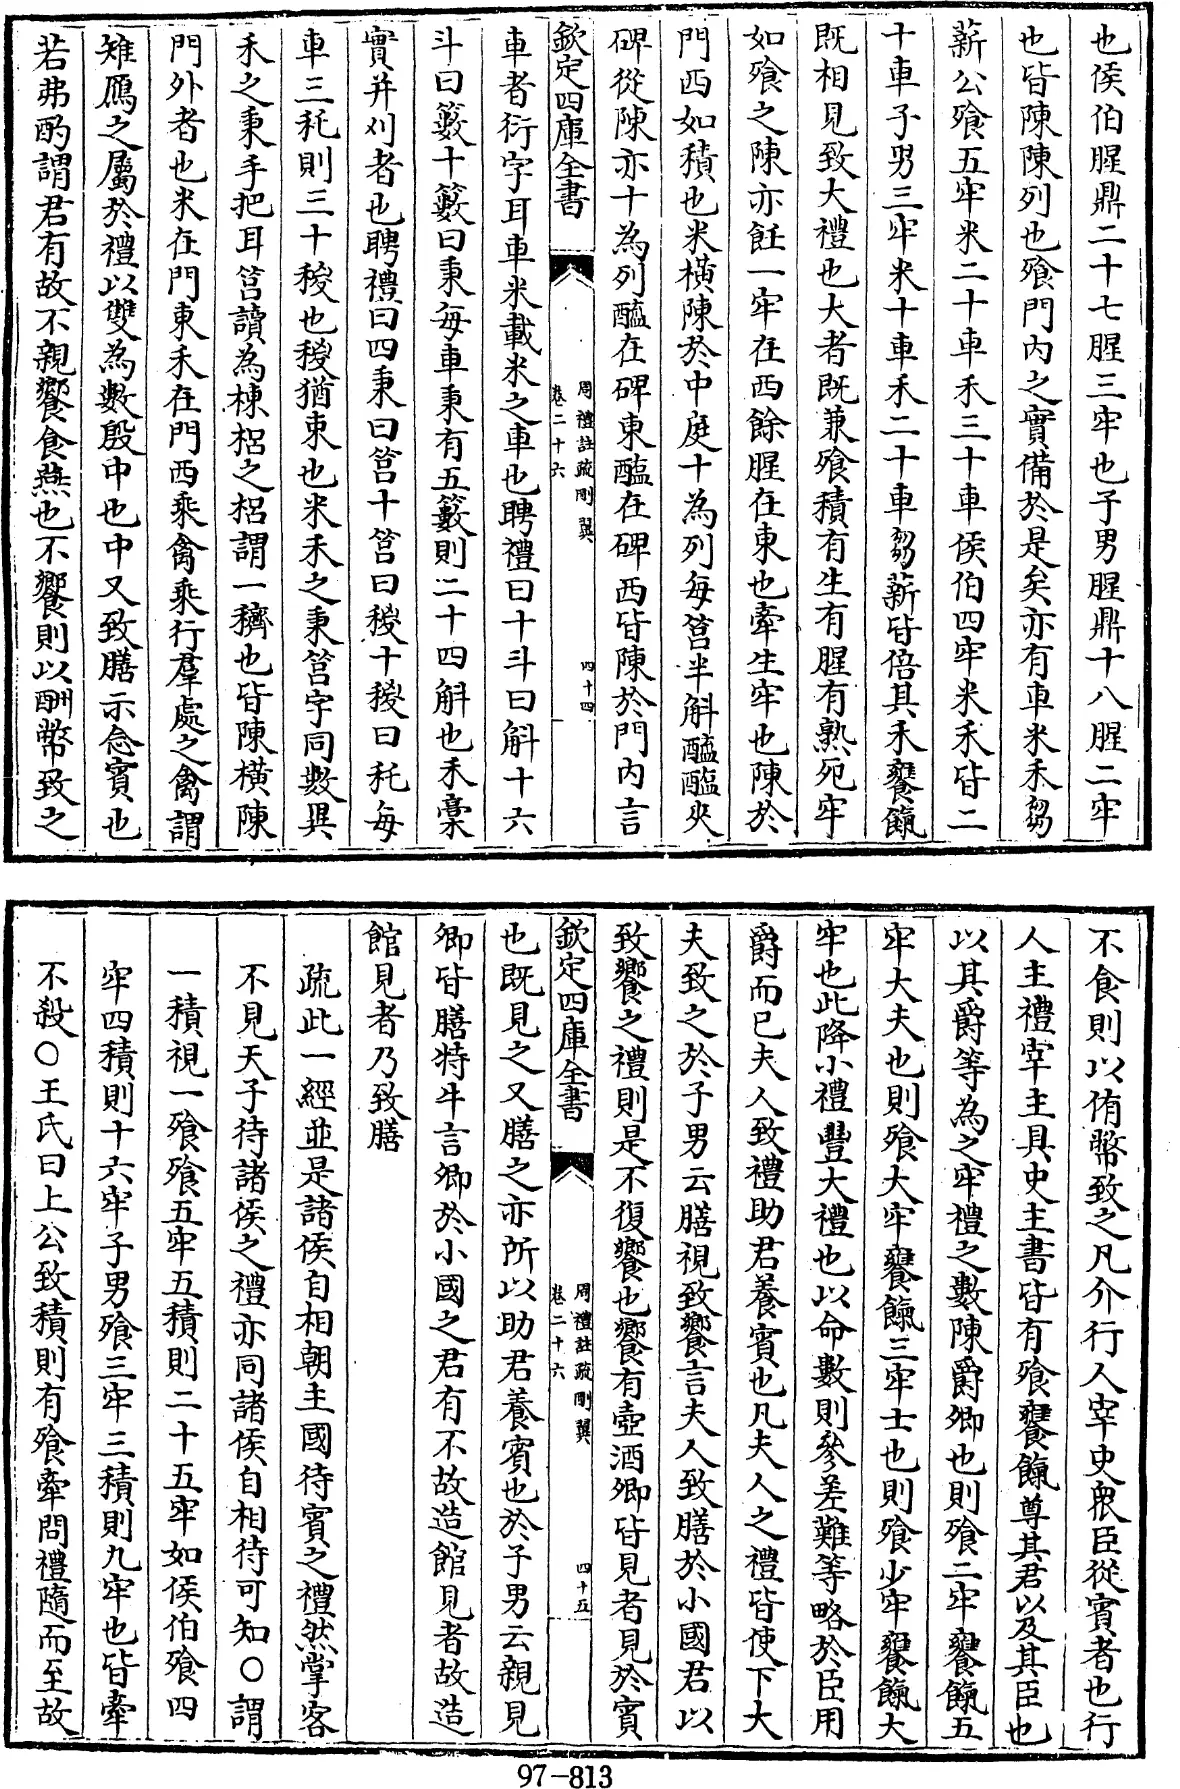 也侯伯腥鼎二十七腥三牢也子男腥鼎十八腥二牢
也皆陳陳列也飱門内之實備於是矣亦有車米禾芻
薪公飱五牢米二十車禾三十車侯伯四牢米禾皆二
十車子男三牢米十車禾二十車芻薪皆倍其禾饔餼
既相見致大禮也大者既兼飱積有生有腥有熟死牢
如飱之陳亦飪一牢在西餘腥在東也牽生牢也陳於
門西如積也米横陳於中庭十為列每筥半斛醯醢夾
碑從陳亦十為列醢在碑東醯在碑西皆陳於門内言
欽定四庫全書
周禮註疏刪翼
卷二十六
四十四
車者衍字耳車米載米之車也聘禮曰十斗曰斛十六
斗曰籔十籔曰秉每車秉有五籔則二十四斛也禾稾
實并刈者也聘禮曰四秉曰筥十筥曰稯十稯曰秅每
車三秅則三十稯也稯猶束也米禾之秉筥字同數異
禾之秉手把耳筥讀為棟梠之梠謂一穧也皆陳横陳
門外者也米在門東禾在門西乘禽乘行羣處之禽謂
雉鴈之屬於禮以雙為數殷中也中又致膳示念賓也
若弗酌謂君有故不親饗食燕也不饗則以酬幣致之
不食則以侑幣致之凡介行人宰史衆臣從賓者也行
人主禮宰主具史主書皆有飱饔餼尊其君以及其臣也
以其爵等為之牢禮之數陳爵卿也則飱二牢饔餼五
牢大夫也則飱大牢饔餼三牢士也則飱少牢饔餼大
牢也此降小禮豐大禮也以命數則參差難等略於臣用
爵而已夫人致禮助君養賓也凡夫人之禮皆使下大
夫致之於子男云膳視致饗言夫人致膳於小國君以
致饗之禮則是不復饗也饗有壺酒卿皆見者見於賓
欽定四庫全書
周禮註疏刪翼
卷二十六
四十五
也既見之又膳之亦所以助君養賓也於子男云親見
卿皆膳特牛言卿於小國之君有不故造館見者故造
館見者乃致膳
疏此一經並是諸侯自相朝主國待賓之禮然掌客
不見天子待諸侯之禮亦同諸侯自相待可知○謂
一積視一飱飱五牢五積則二十五牢如侯伯飱四
牢四積則十六牢子男飱三牢三積則九牢也皆牽
不殺○王氏曰上公致積則有飱牽問禮隨而至故
97-813